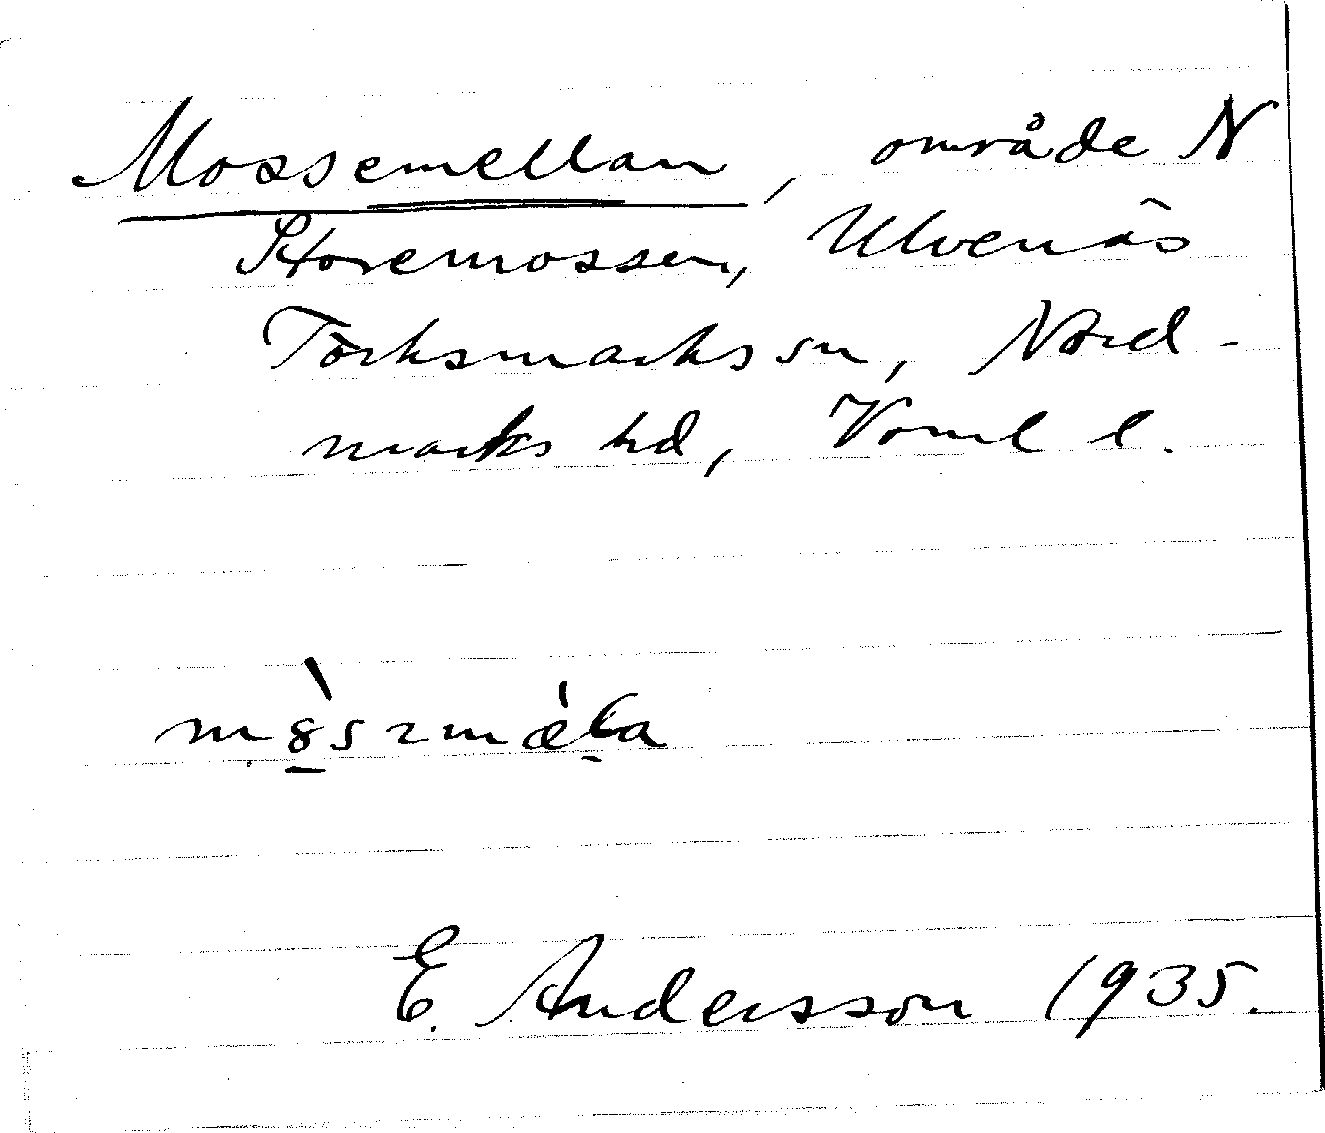 Mossemellan, område N
Storemossen, Ulvenäs
Törksmarks sn, Nord-
marks hd, Värml l.
E. Andersson 1935.